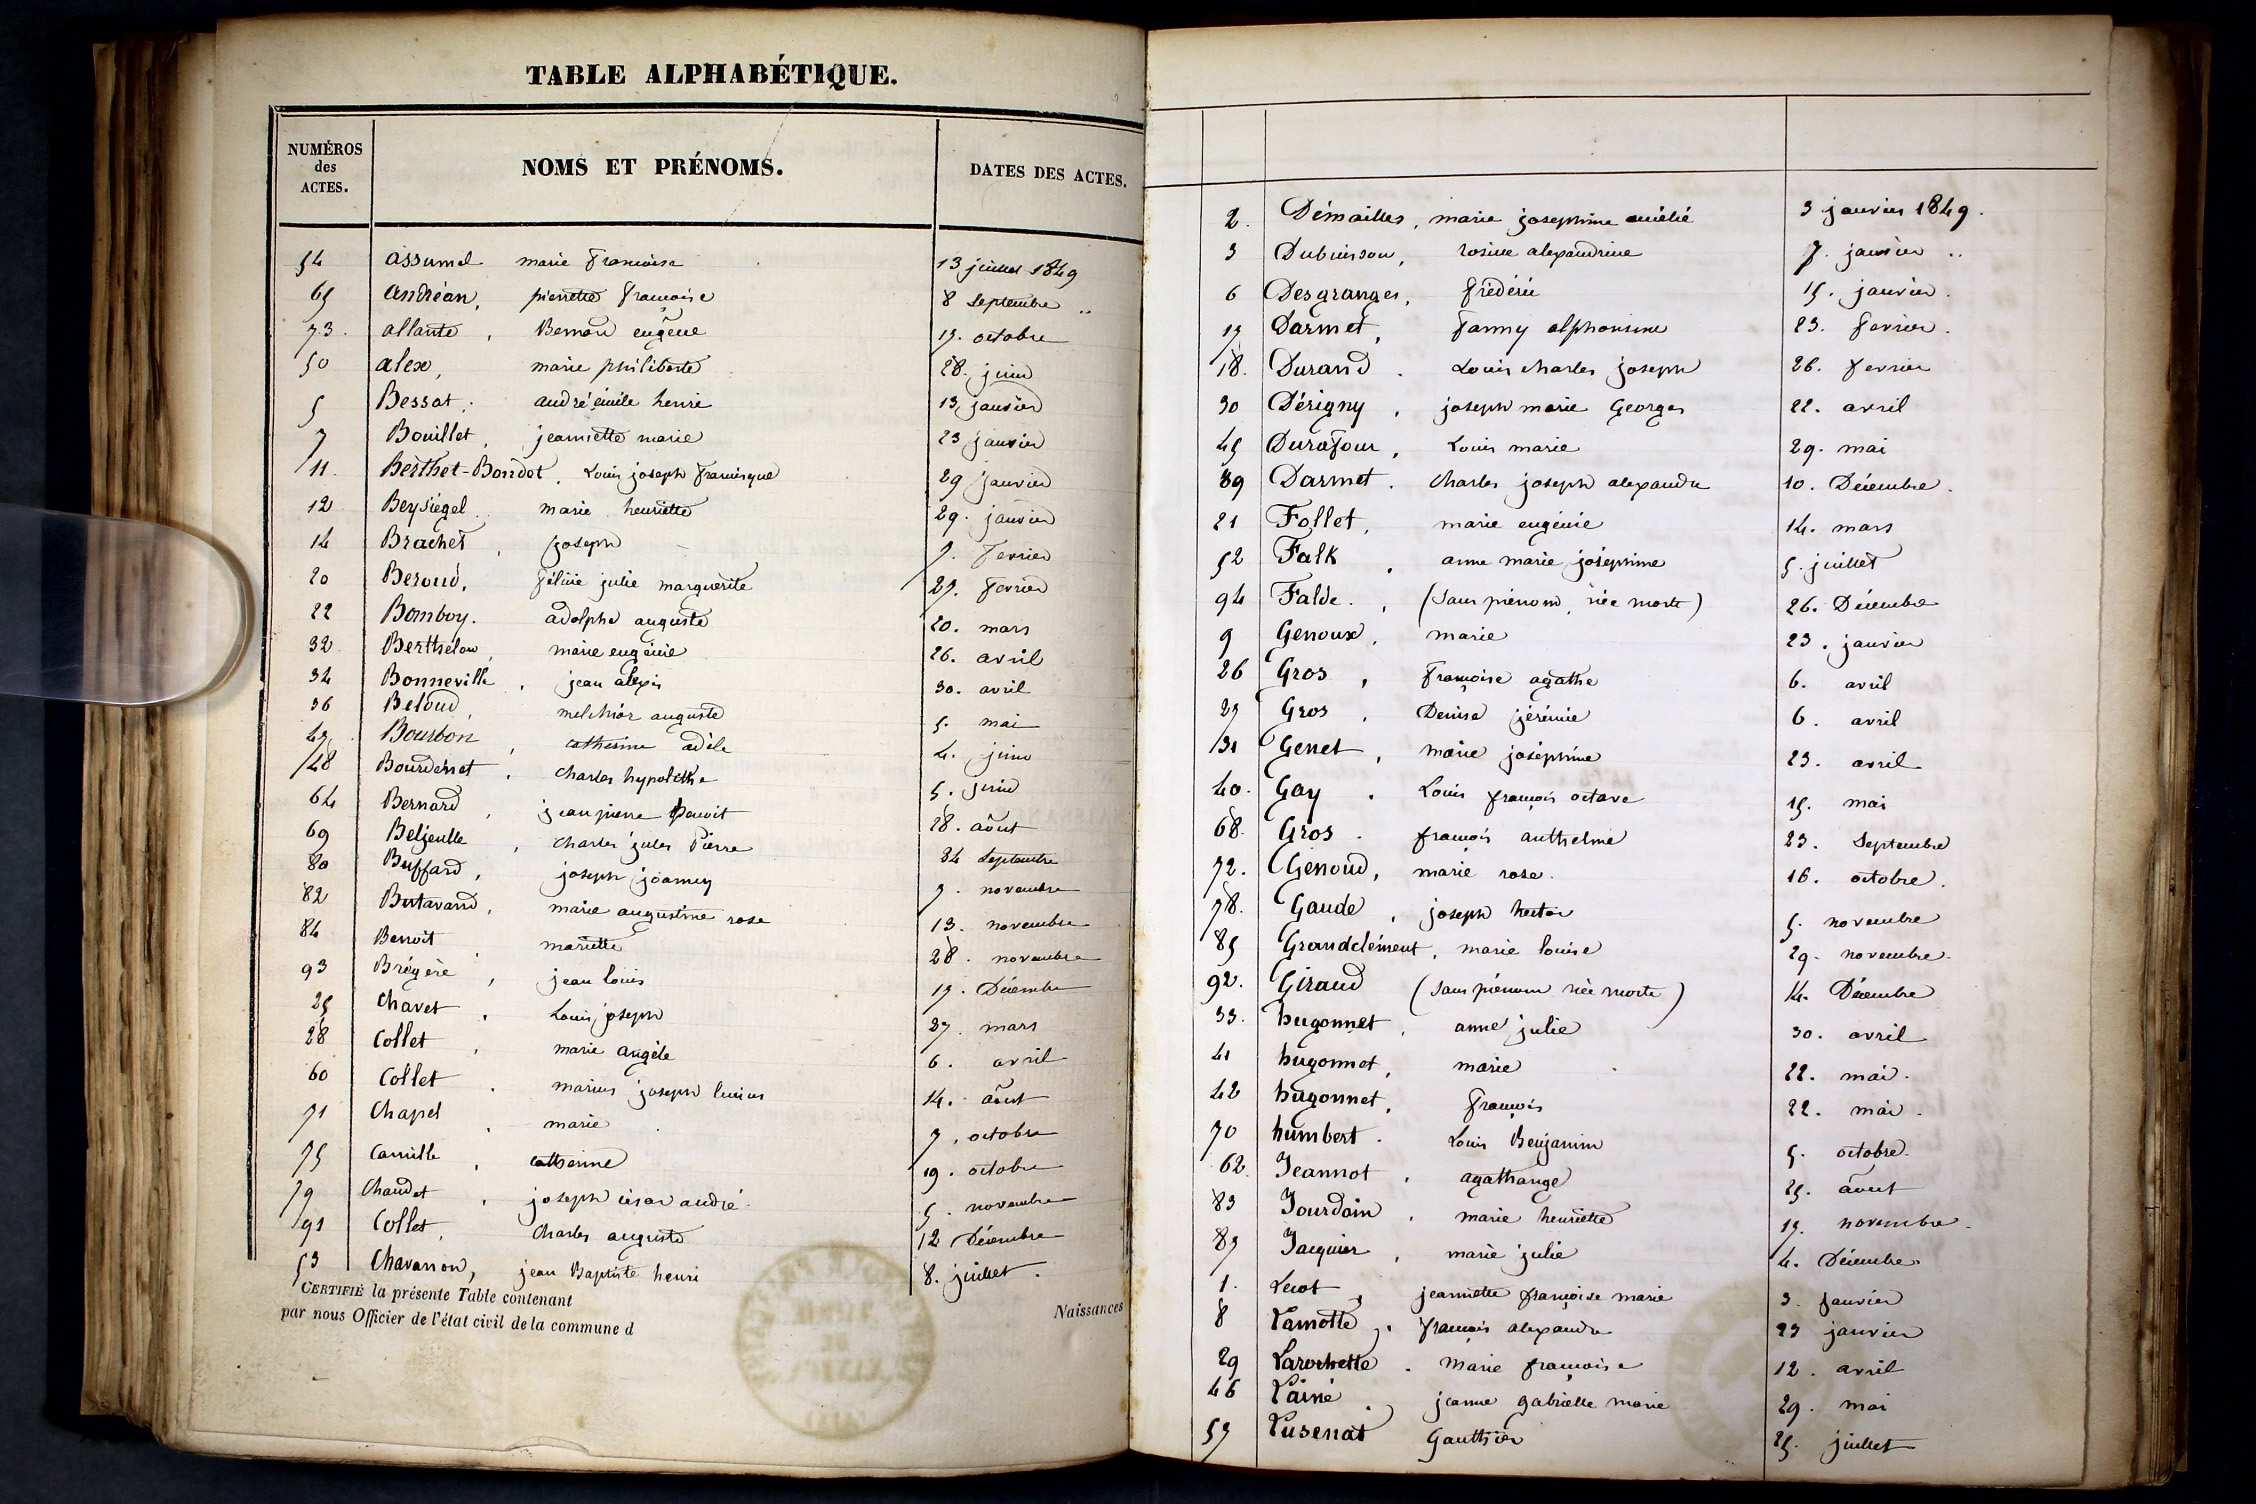 TABLE ALPHABÉTIQUE.
NUMÉROS des ACTES.
NOMS ET PRÉNOMS.
DATES DES ACTES.
54 assumel marie francoise 13 juillet 1849
65 andréan, pierrette françoise 8 septembre ..
73. allante, Bernard eugène 17. octobre
50 alex, marie philiberte 28. juin
5 Bessat, andré émile henri 13 janvier
7 Bouillet, jeannette marie 23 janvier
11. Berthet-Bondet, Louis joseph francisque 29 janvier
12 Beysiegel. marie henriette 29. janvier
14 Brachet, joseph 7. fevrier
20 Beroud, féline julie marguerite 27. fevrier
22 Bomboy. adolphe auguste 20. mars
32 Berthelon, marie eugénie 26. avril
34 Bonneville, jean alexis 30. avril
36 Beloud, melchior auguste 5. mai
47 Bourbon, catherine adèle 4. juin
48 Bourdenet, charles hypolithe 5. juin
64 Bernard, jean pierre Benoit 28. août
69 Beljeulle, charles jules Pierre 24 septembre
80 Buffard, joseph joanny 7. novembre
82 Butavand, marie augustine rose 13. novembre
84 Benoit, mariette 28. novembre
93 Brégère, jean louis 17. Décembre
25 Chavet, Louis joseph 27. mars
28 Collet, marie angèle 6. avril
60 Collet, marius joseph lucius 14. août
71 Chapel, marie 7. octobre
75 Camille, catherine 19. octobre
79 Chaudet, joseph césar andré 5. novembre
91 Collet, charles auguste 12 Décembre
53 Chavanon, jean Baptiste henri 8. juillet.
CERTIFIÉ la présente Table contenant
Naissances
par nous Officier de l'état civil de la commune d
2. Démailles, marie josephine amélie 3 janvier 1849.
3 Dubuisson, rosine alexandrine 7. janvier ..
6 Desgranges, frédéric 15. janvier.
17 Darmet, fanny alphonsine 23. fevrier.
18. Durand. Louis charles joseph 26. fevrier
30 Dérigny, joseph marie Georges 22. avril
45 Durafour, Louis marie 29. mai
89 Darmet. charles joseph alexandre 10. Décembre.
21 Follet, marie eugénie 14. mars
52 Falk, anne marie joséphine 5. juillet
94 Falde., (sans prénom, née morte) 26. Décembre
9 Genoux, marie 23. janvier
26 Gros, françoise agathe 6. avril
27 Gros, Denise jérémie 6. avril
31 Genet, marie joséphine 23. avril
40. Gay. Louis françois octave 15. mai
68. Gros. françois anthelme 23. septembre
72. Genoud, marie rose. 16. octobre.
78. Gaude, joseph hector 5. novembre
85 Grandclément, marie louise 29. novembre.
92. Giraud (sans prénom née morte) 14. Décembre
33. hugonnet, anne julie 30. avril
41 hugonnet, marie 22. mai.
42 hugonnet, françois 22. mai.
70 humbert. Louis Benjamin 5. octobre.
62 Jeannot, agathange 25. août
83 Jourdain, marie henriette 17. novembre.
87 Jacquier, marie julie 4. Décembre.
1. Lecot, jeannette françoise marie 3. janvier
8 Lamotte, françois alexandre 23 janvier
29 Larochette. marie françoise 12. avril
46 Lainé, jeanne gabrielle marie 29. mai
57 Lusenat Gauthier 25. juillet